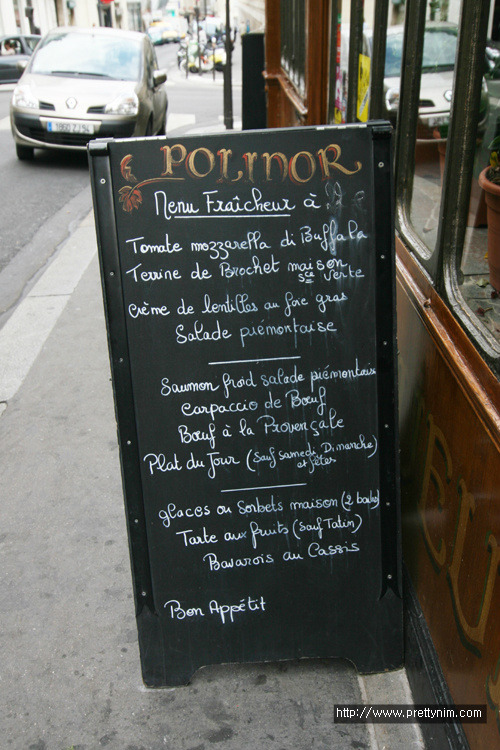 POLINOR
Menu Fraîcheur à
Tomate mozzarella di Buffala
Terrine de Brochet maison
sce verte
Crème de lentilles au foie gras
Salade piémontaise
Saumon froid salade piémontaise
Carpaccio de Bœuf
Bœuf à la Provençale
Plat du Jour (sauf samedi Dimanche)
et fêtes
glaces ou Sorbets maison (2 boules)
Tarte aux fruits (sauf Tatin)
Bavarois au Cassis
Bon Appétit
http://www.prettynim.com